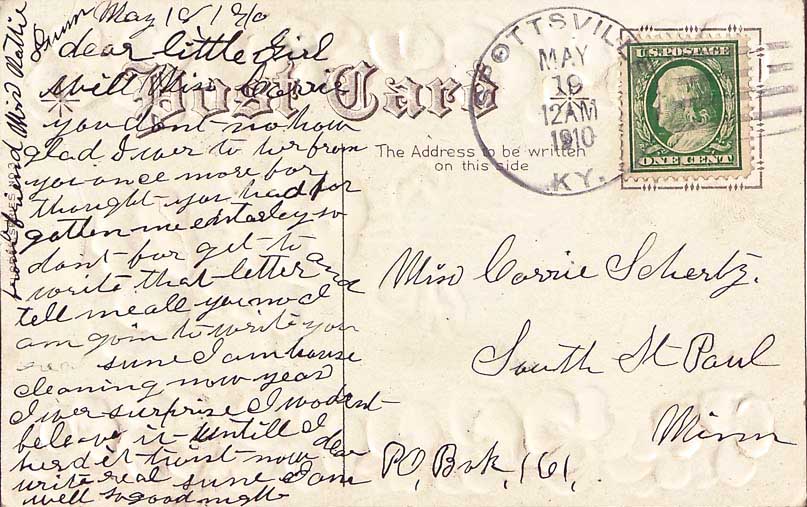 May 18 1910
dear little Girl
will Miss Corrie
you dont no how
glad I wer to her from
you once more for
thought you had for
gotten me entarley so
dont for get to
write that letter and
tell me all you no I
am goin to write you
real sune I am house
cleaning now years
I wer surprise I wodent
beleave it untill I
herd it twist now dear
write real sune I am
well so good night
from friend Miss Nattie
Gunn
Post Card
The Address to be written
on this side
SPOTTSVILLE
MAY
19
12AM
1910
KY.
U.S. POSTAGE
ONE CENT
Miss Corrie Schertz.
South St Paul
Minn
PO, Box, 161,